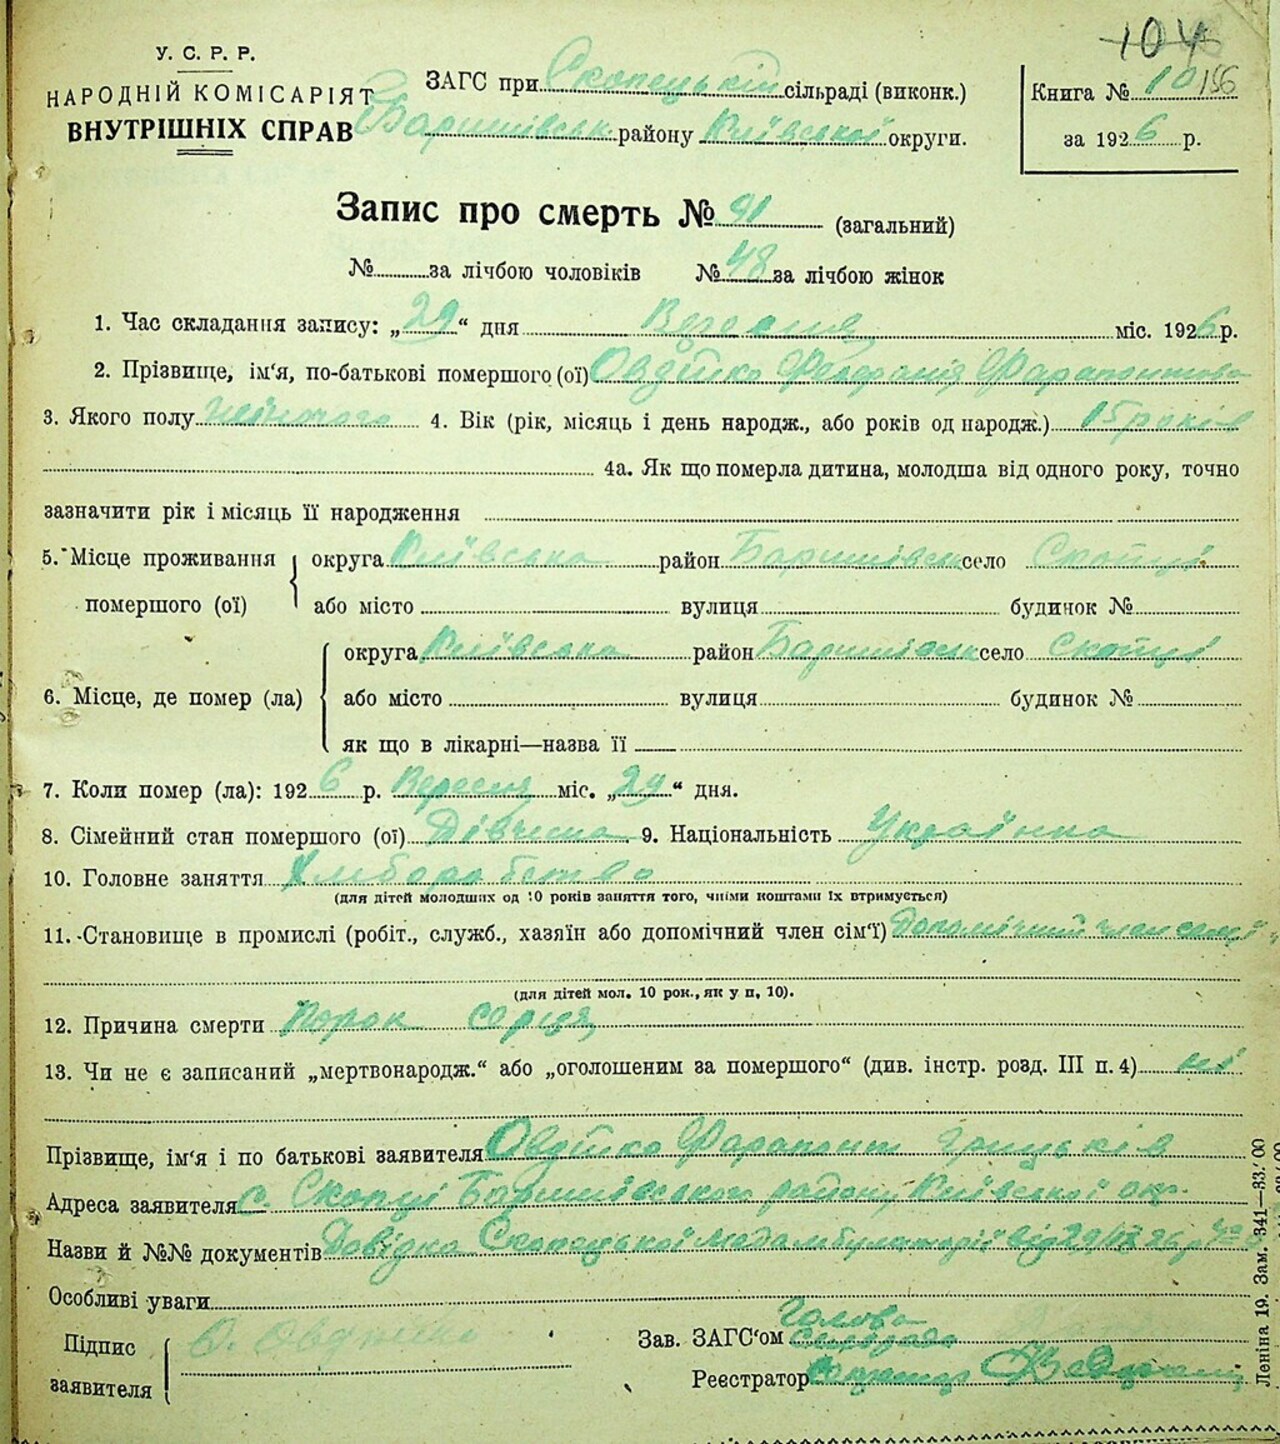 104
У. С. Р. Р.
НАРОДНІЙ КОМІСАРІЯТ
ВНУТРІШНІХ СПРАВ
ЗАГС при Скопецькій сільраді (виконк.)
Баришівськ району Київської округи.
Книга № 10/156
за 1926 р.
Запис про смерть № 91 (загальний)
№ за лічбою чоловіків № 48 за лічбою жінок
1. Час складання запису: „29“ дня Вересня міс. 1926 р.
2. Прізвище, ім'я, по-батькові помершого (ої) Овдійко Фарапонтова
3. Якого полу жіночого 4. Вік (рік, місяць і день народж., або років од народж.) 15 років
4а. Як що померла дитина, молодша від одного року, точно
зазначити рік і місяць її народження
5. Місце проживання помершого (ої) округа Київська район Баришівськ село Скопці
або місто вулиця будинок №
6. Місце, де помер (ла) округа Київська район Баришівськ село Скопці
або місто вулиця будинок №
як що в лікарні—назва її
7. Коли помер (ла): 1926 р. Вересня міс. „29“ дня.
8. Сімейний стан помершого (ої) Дівчина 9. Національність Українка
10. Головне заняття Хліборобство
(для дітей молодших од 10 років заняття того, чиїми коштами їх втримується)
11. Становище в промислі (робіт., служб., хазяїн або допомічний член сім'ї) Допомічний член сем'ї
(для дітей мол. 10 рок., як у п. 10).
12. Причина смерти Порок серця
13. Чи не є записаний „мертвонародж.“ або „оголошеним за помершого“ (див. інстр. розд. III п. 4) ні
Прізвище, ім'я і по батькові заявителя Овдійко Фарапонт Грицьків
Адреса заявителя с. Скопці Баришівського району Київської окр.
Назви й №№ документів Довідка Скопецької медамбулаторії від 29/IX 26 р.
Особливі уваги
Підпис заявителя О. Овдійко
Зав. ЗАГС'ом Голова Сільради
Реєстратор Секретар
Леніна 19. Зам. 341—33.'00